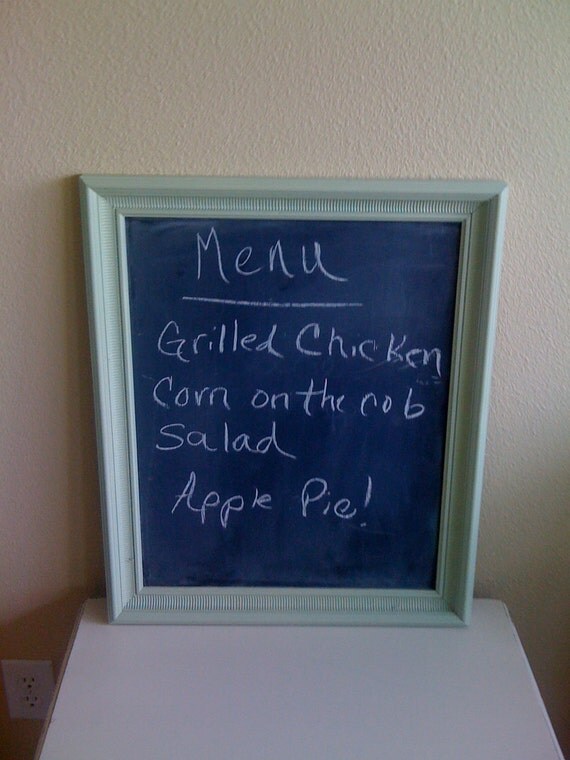 Menu
Grilled Chicken
Corn on the cob
Salad
Apple Pie!